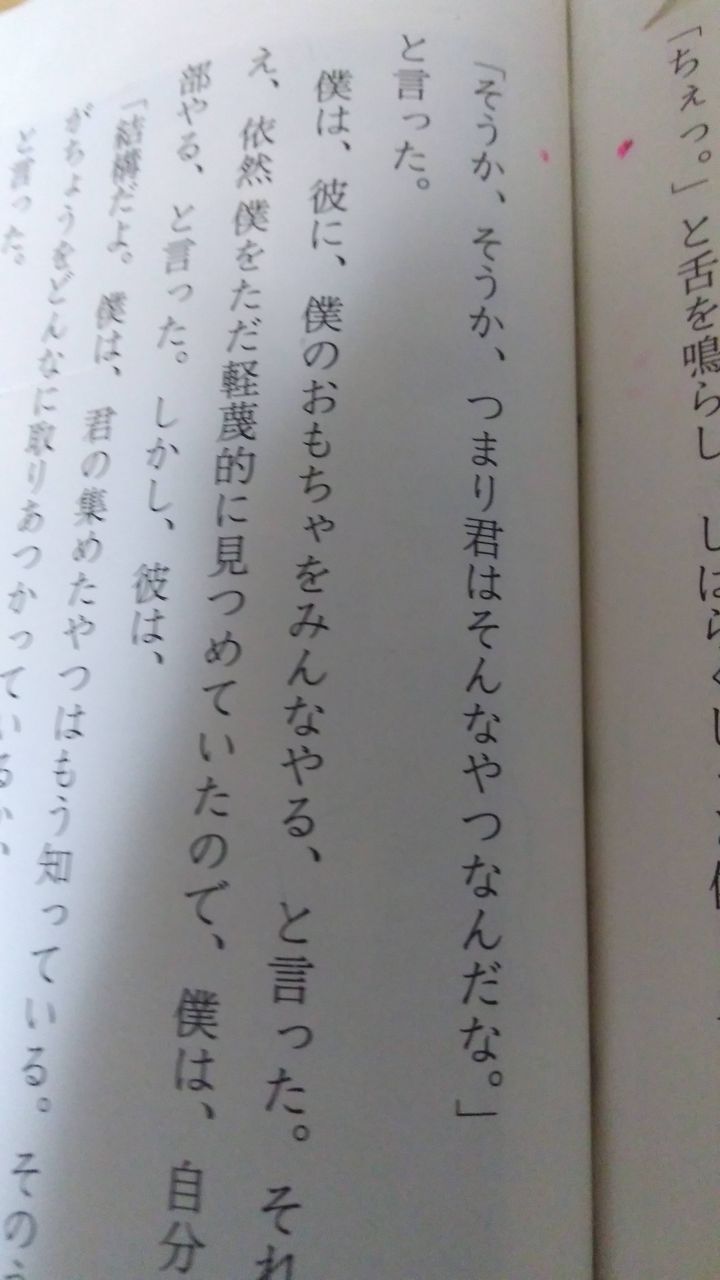 「ちぇっ。」と舌を鳴らし
「そうか、そうか、つまり君はそんなやつなんだな。」
と言った。
僕は、彼に、僕のおもちゃをみんなやる、と言った。それ
え、依然僕をただ軽蔑的に見つめていたので、僕は、自分
部やる、と言った。しかし、彼は、
「結構だよ。僕は、君の集めたやつはもう知っている。そのう
がちょうをどんなに取りあつかっているか、
と言った。